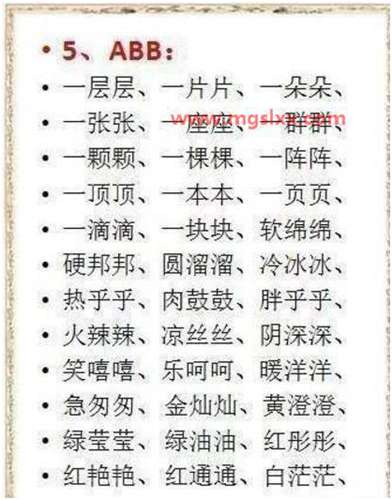 • 5、ABB：
• 一层层、一片片、一朵朵、
• 一张张、一座座、一群群、
www.mgslxx.com
• 一颗颗、一棵棵、一阵阵、
• 一顶顶、一本本、一页页、
• 一滴滴、一块块、软绵绵、
• 硬邦邦、圆溜溜、冷冰冰、
• 热乎乎、肉鼓鼓、胖乎乎、
• 火辣辣、凉丝丝、阴深深、
• 笑嘻嘻、乐呵呵、暖洋洋、
• 急匆匆、金灿灿、黄澄澄、
• 绿莹莹、绿油油、红彤彤、
• 红艳艳、红通通、白茫茫、